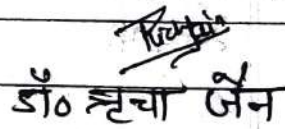 डॉ० ऋचा जैन